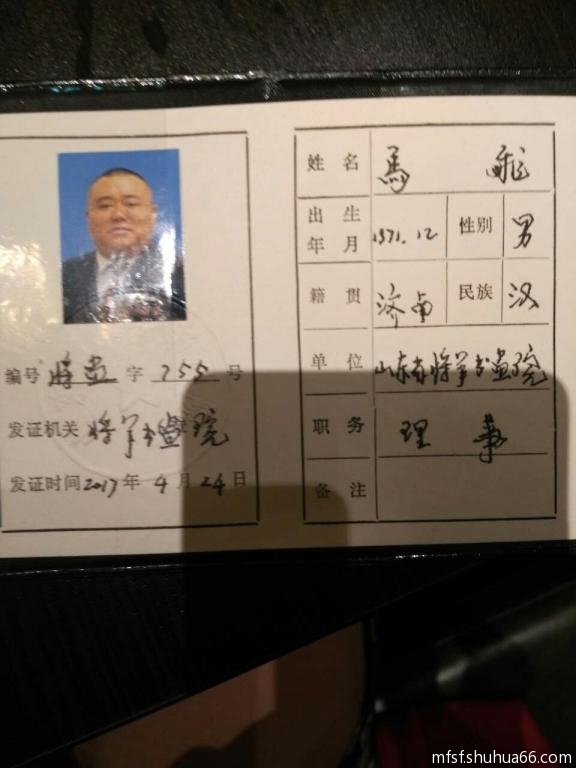 编号 将画 字 755 号
发证机关 将军书画院
发证时间 2017年 4月 24日
姓名 馬
出生年月 1971.12 性别 男
籍贯 济南 民族 汉
单位 山东省将军书画院
职务 理事
备注
mfsf.shuhua66.com